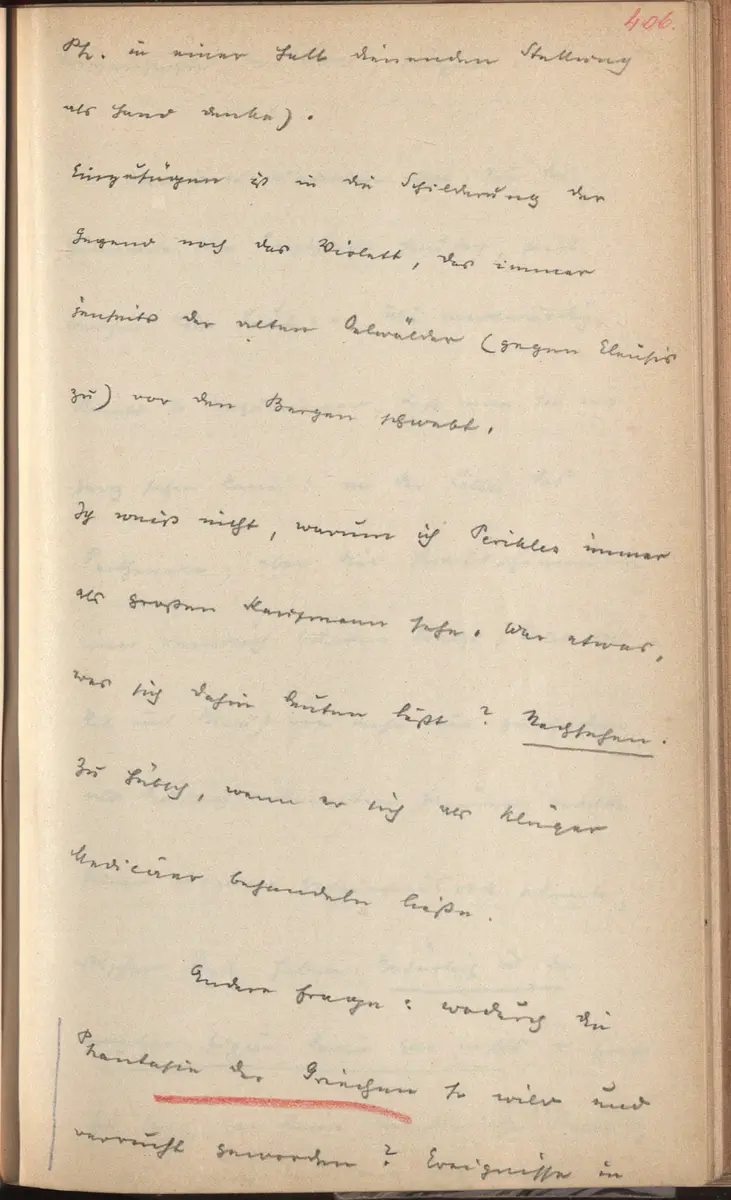 406.
Ph. in einer halb dienenden Stellung
als Hand denke).
Einzufügen ist in die Schilderung der
Gegend noch das Violett, das immer
jenseits der alten Oelwälder (gegen Eleusis
zu) vor den Bergen schwebt.
Ich weiß nicht, warum ich Perikles immer
als großen Kaufmann sehe. War etwas,
was sich dahin deuten läßt? Nachsehen.
Zu hübsch, wenn er sich als kluger
Medicäer behandeln ließe.
Andere Frage: wodurch die
Phantasie der Griechen so wild und
verrucht geworden? Ereignisse in